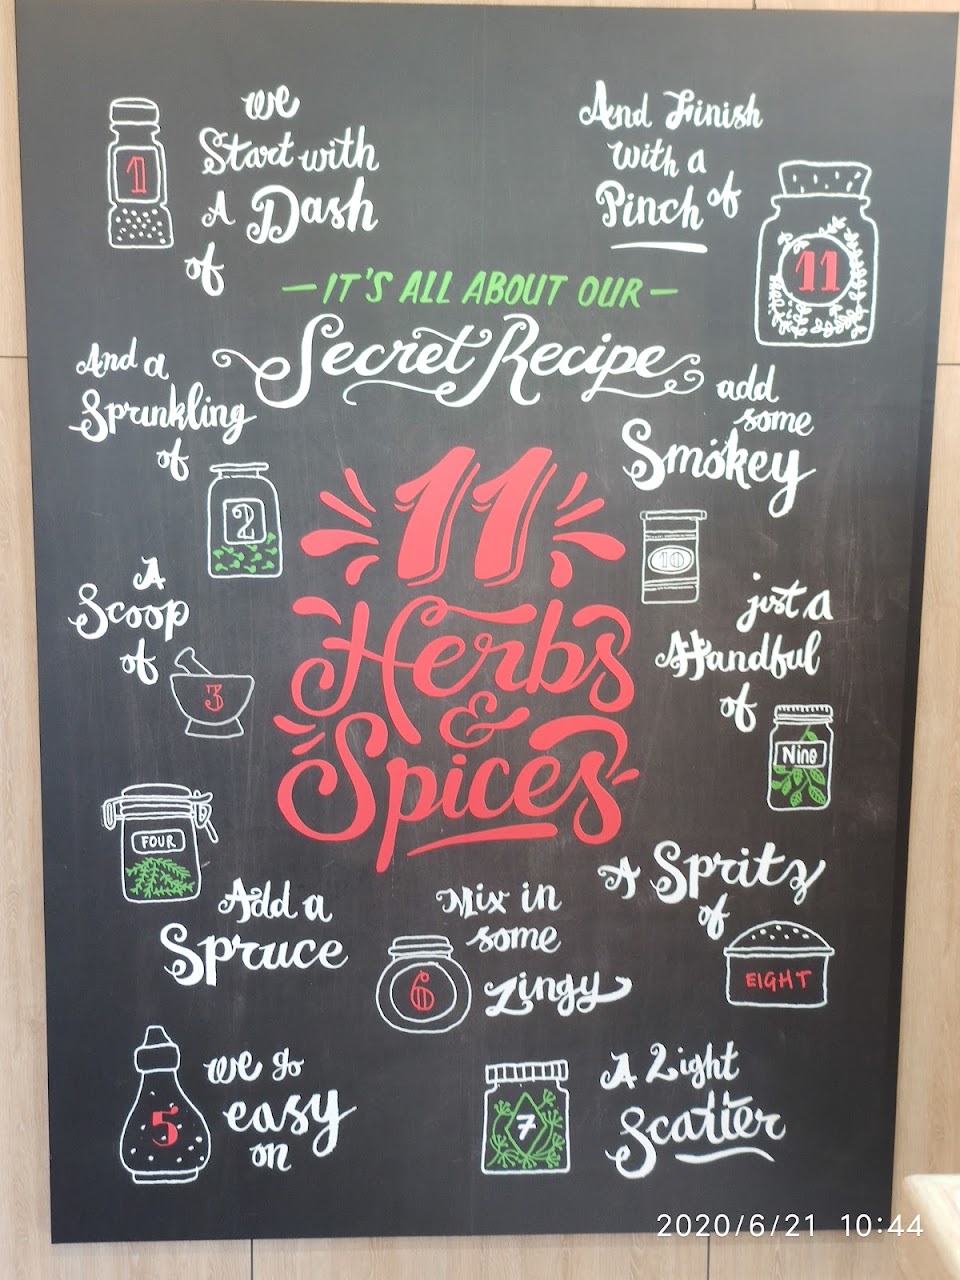 we
Start with
A Dash
of
1
And Finish
with a
Pinch of
11
— IT'S ALL ABOUT OUR —
Secret Recipe
11
Herbs
&
Spices
And a
Sprinkling
of
2
A
Scoop
of
3
FOUR
Add a
Spruce
we go
easy
on
5
Mix in
some
Zingy
6
A Light
Scatter
7
A Spritz
of
EIGHT
just a
Handful
of
Nine
add
some
Smokey
10
2020/6/21 10:44